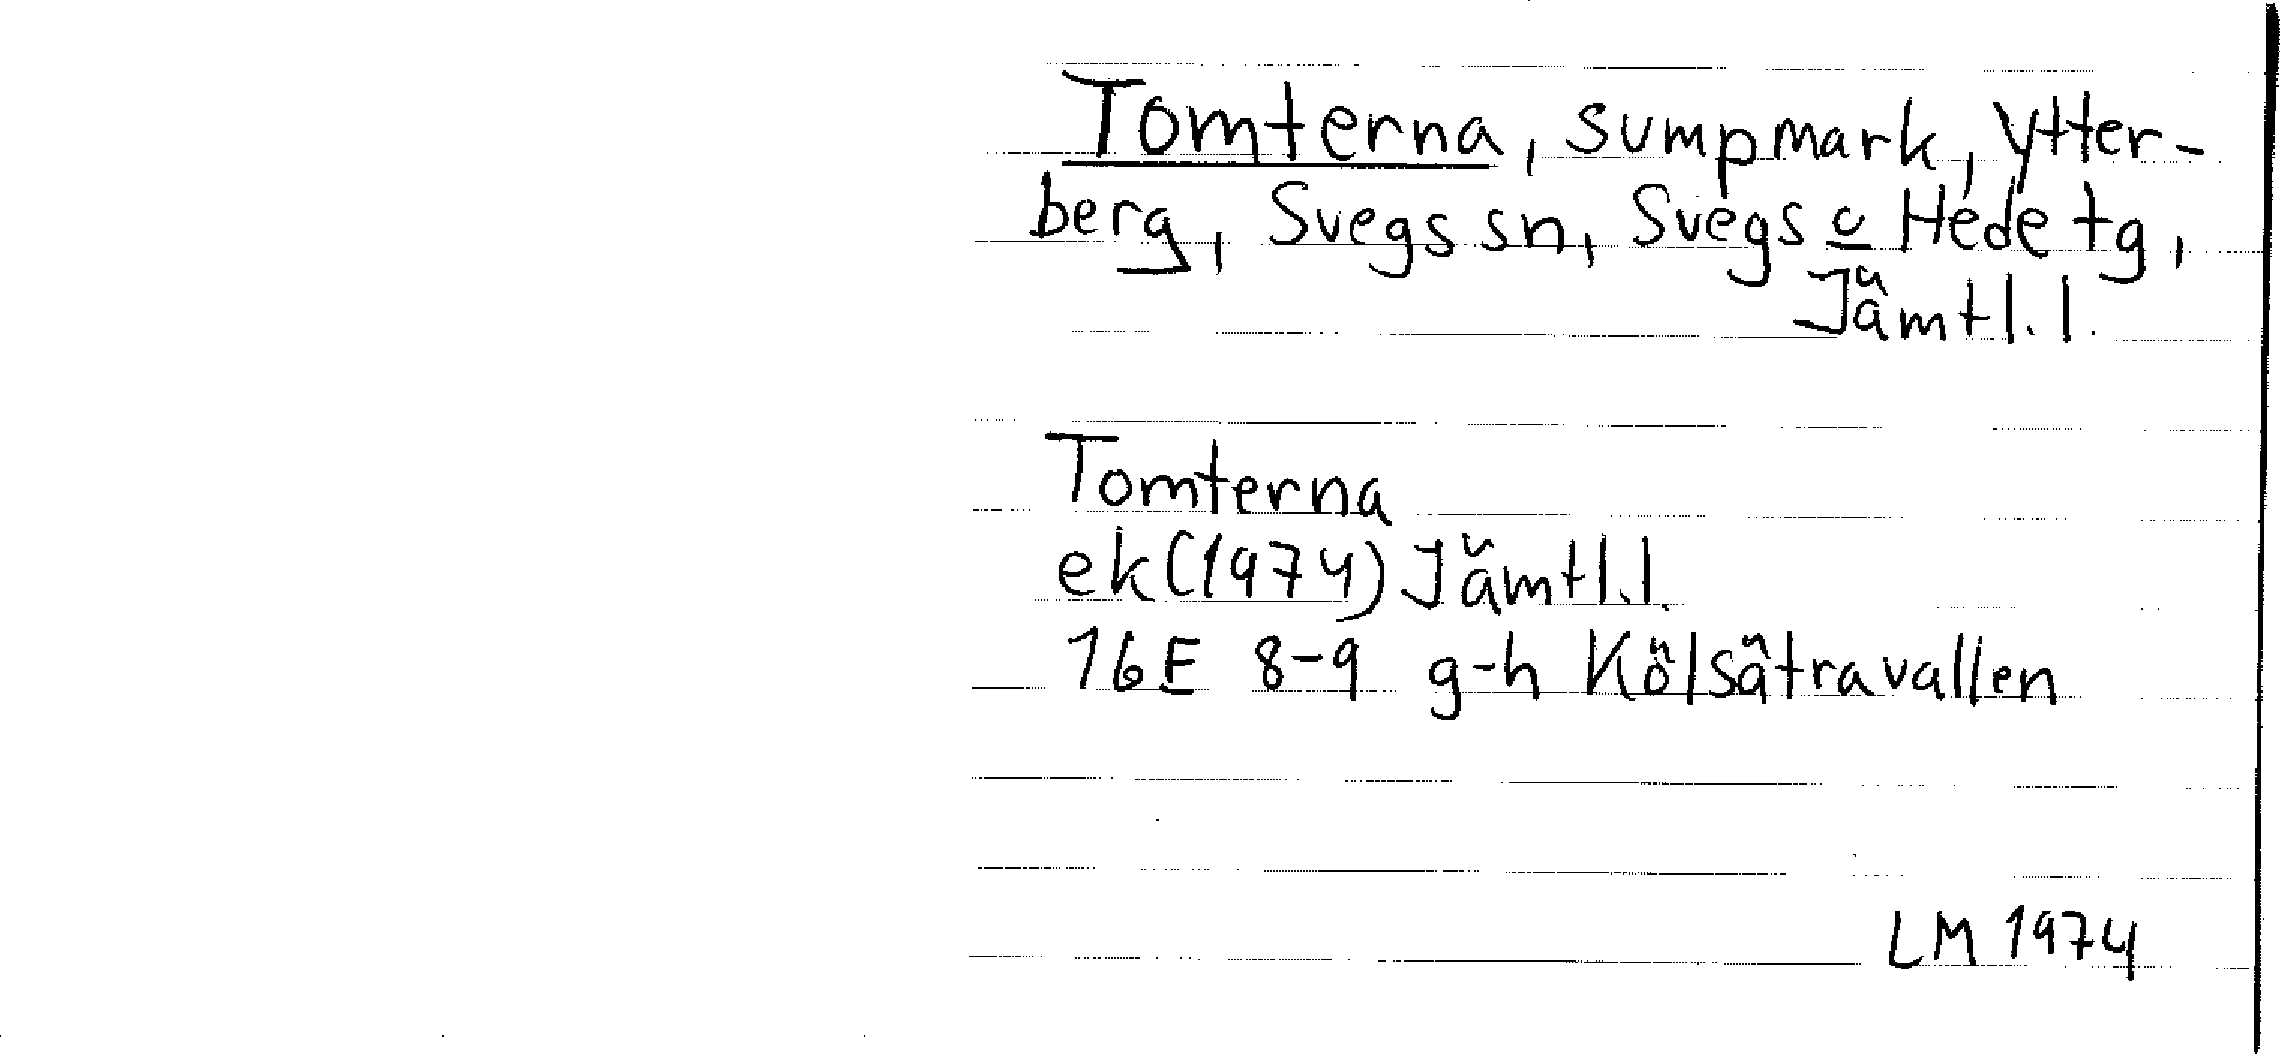 Tomterna, sumpmark, Ytter-
berg, Svegs sn, Svegs o Hede tg,
Jämtl. l.
Tomterna
ek (1974) Jämtl. l.
16E 8-9 g-h Kölsätravallen
LM 1974